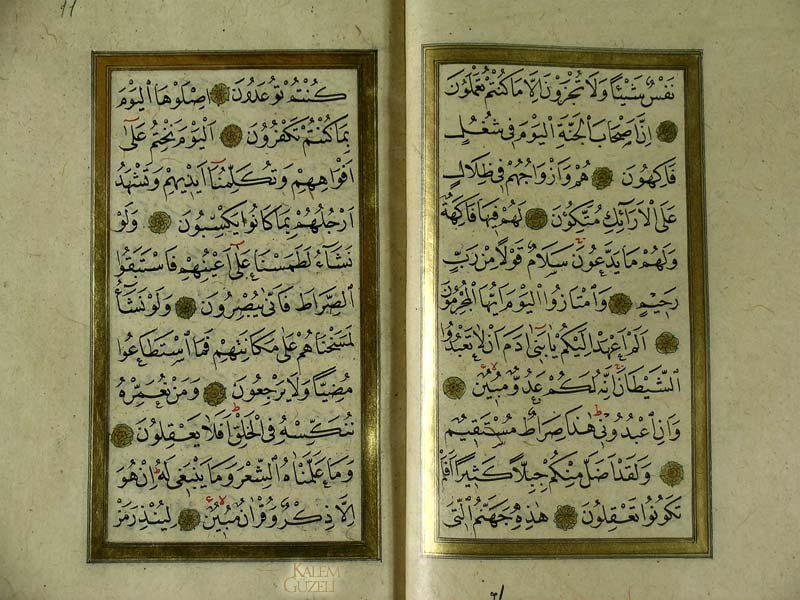 نَفْسٌ شَيْئًا وَلَا تُجْزَوْنَ اِلَّا مَا كُنْتُمْ تَعْمَلُونَ
اِنَّ اَصْحَابَ الْجَنَّةِ الْيَوْمَ فٖى شُغُلٍ
فَاكِهُونَ هُمْ وَاَزْوَاجُهُمْ فٖى ظِلَالٍ
عَلَى الْاَرَآئِكِ مُتَّكِؤُنَ لَهُمْ فٖيهَا فَاكِهَةٌ
وَلَهُمْ مَا يَدَّعُونَ سَلَامٌ قَوْلًا مِنْ رَبٍّ
رَحٖيمٍ وَامْتَازُوا الْيَوْمَ اَيُّهَا الْمُجْرِمُونَ
اَلَمْ اَعْهَدْ اِلَيْكُمْ يَا بَنٖٓى اٰدَمَ اَنْ لَا تَعْبُدُوا
الشَّيْطَانَ اِنَّهُ لَكُمْ عَدُوٌّ مُبٖينٌ
وَاَنِ اعْبُدُونٖى هٰذَا صِرَاطٌ مُسْتَقٖيمٌ
وَلَقَدْ اَضَلَّ مِنْكُمْ جِبِلًّا كَثٖيرًا اَفَلَمْ
تَكُونُوا تَعْقِلُونَ هٰذِهٖ جَهَنَّمُ الَّتٖى
كُنْتُمْ تُوعَدُونَ اِصْلَوْهَا الْيَوْمَ
بِمَا كُنْتُمْ تَكْفُرُونَ اَلْيَوْمَ نَخْتِمُ عَلٰٓى
اَفْوَاهِهِمْ وَتُكَلِّمُنَٓا اَيْدٖيهِمْ وَتَشْهَدُ
اَرْجُلُهُمْ بِمَا كَانُوا يَكْسِبُونَ وَلَوْ
نَشَآءُ لَطَمَسْنَا عَلٰٓى اَعْيُنِهِمْ فَاسْتَبَقُوا
الصِّرَاطَ فَاَنّٰى يُبْصِرُونَ وَلَوْ نَشَآءُ
لَمَسَخْنَاهُمْ عَلٰى مَكَانَتِهِمْ فَمَا اسْتَطَاعُوا
مُضِيًّا وَلَا يَرْجِعُونَ وَمَنْ نُعَمِّرْهُ
نُنَكِّسْهُ فِى الْخَلْقِ اَفَلَا يَعْقِلُونَ
وَمَا عَلَّمْنَاهُ الشِّعْرَ وَمَا يَنْبَغٖى لَهُ اِنْ هُوَ
اِلَّا ذِكْرٌ وَقُرْاٰنٌ مُبٖينٌ لِيُنْذِرَ مَنْ
KALEM
GÜZELİ